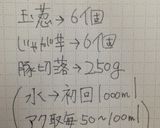 玉葱→6個
じゃが芋→6個
豚切落→250g
(水→初回1000ml
アク取毎50~100ml)